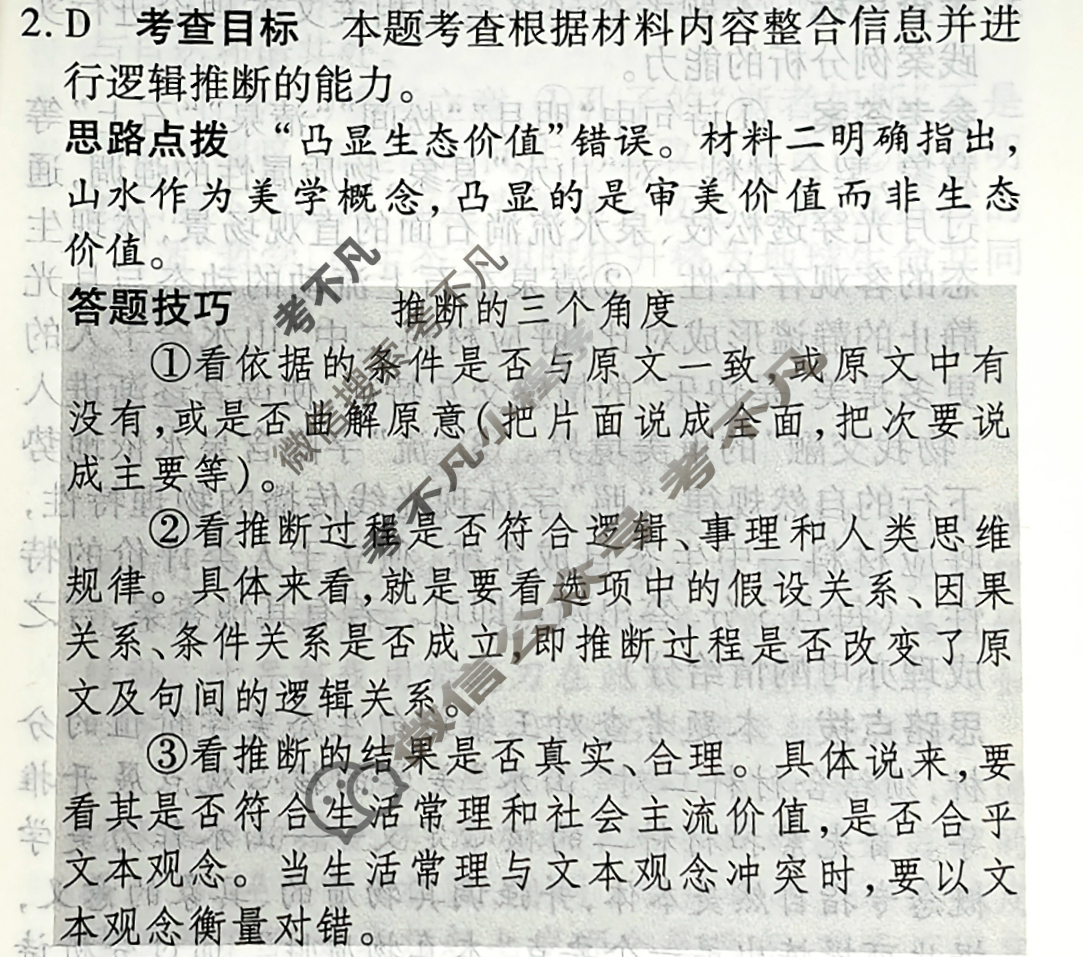 2. D 考查目标 本题考查根据材料内容整合信息并进
行逻辑推断的能力。
思路点拨 “凸显生态价值”错误。材料二明确指出，
山水作为美学概念，凸显的是审美价值而非生态
价值。
答题技巧 推断的三个角度
①看依据的条件是否与原文一致，或原文中有
没有，或是否曲解原意（把片面说成全面，把次要说
成主要等）。
②看推断过程是否符合逻辑、事理和人类思维
规律。具体来看，就是要看选项中的假设关系、因果
关系、条件关系是否成立，即推断过程是否改变了原
文及句间的逻辑关系。
③看推断的结果是否真实、合理。具体说来，要
看其是否符合生活常理和社会主流价值，是否合乎
文本观念。当生活常理与文本观念冲突时，要以文
本观念衡量对错。
考不凡
微信搜索 考不凡
考不凡小程序
微信公众号 考不凡